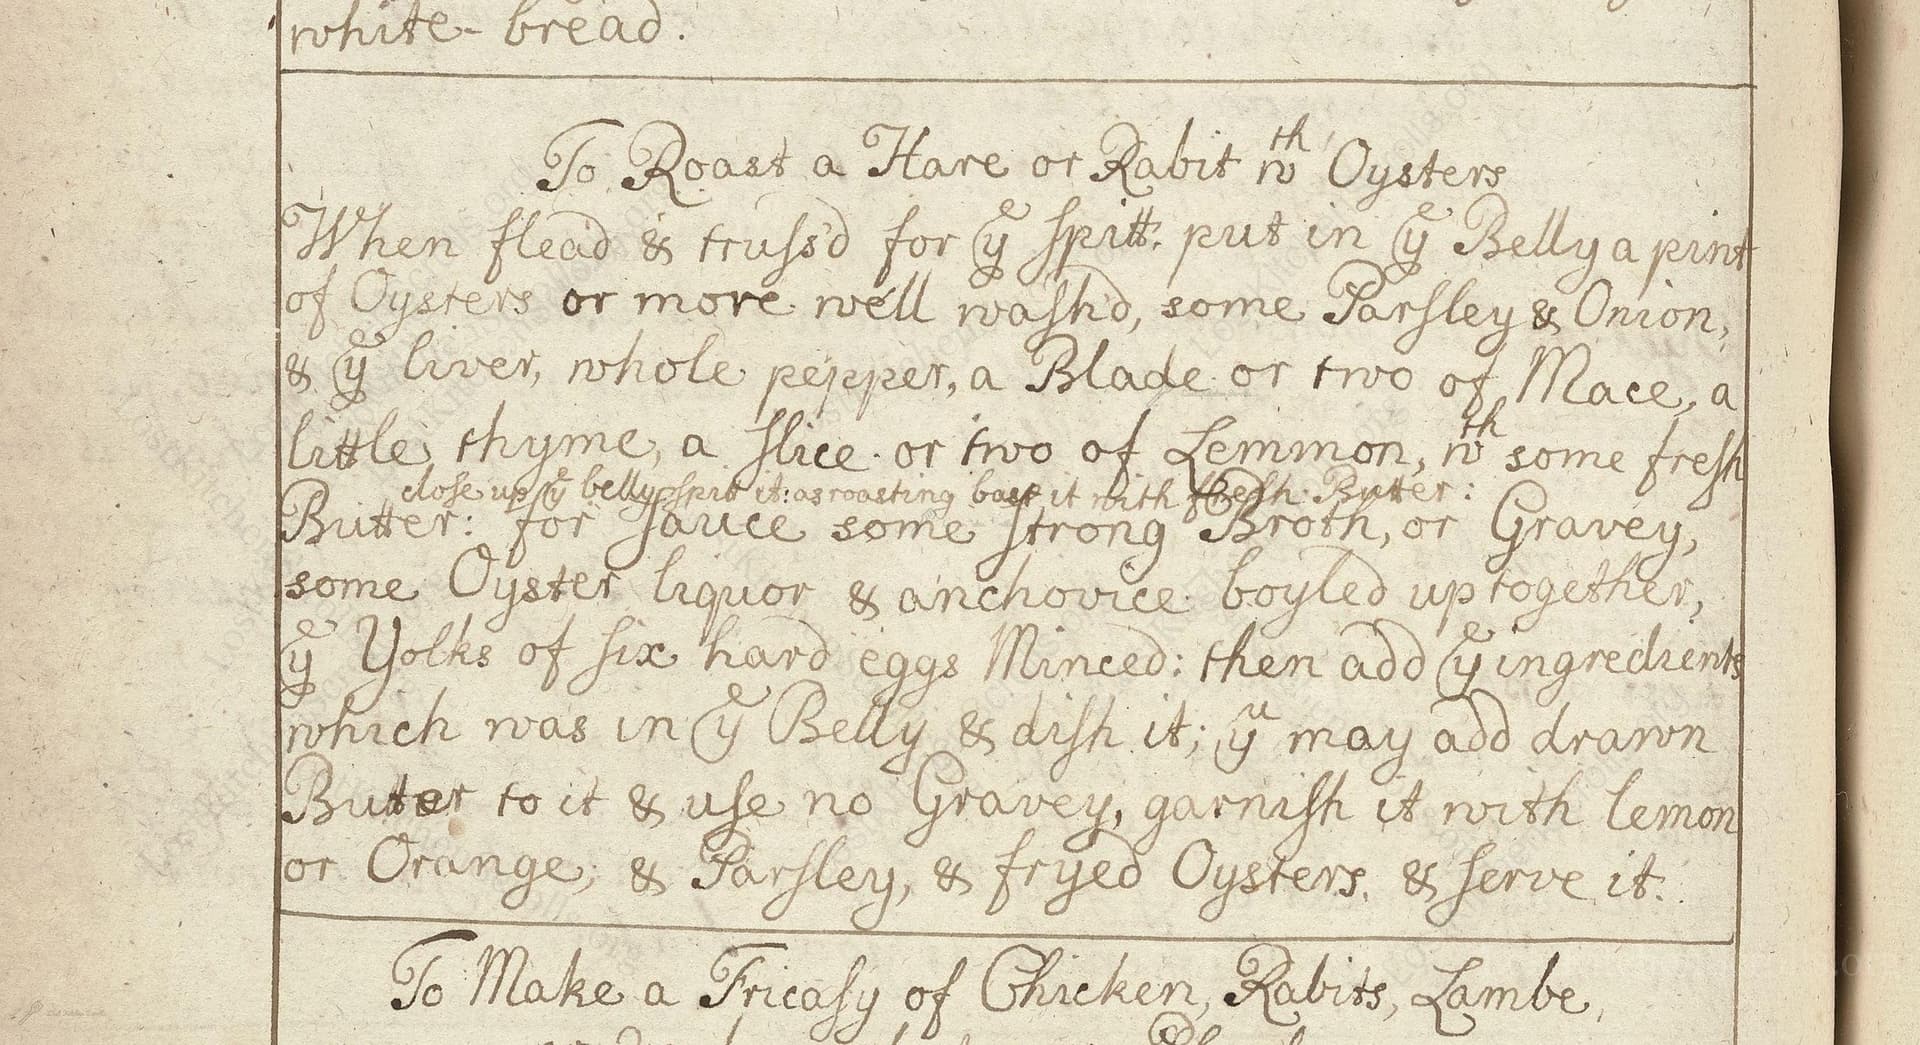 white-bread.
To Roast a Hare or Rabit wth Oysters
When flead & truss'd for ye spitt: put in ye Belly a pint
of Oysters or more well washd, some Parsley & Onion,
& ye liver, whole pepper, a Blade or two of Mace, a
little thyme, a slice or two of Lemmon, wth some fresh
close up ye belly spit it: as roasting bast it with fresh Butter:
Butter: for sauce some strong Broth, or Gravey,
some Oyster liquor & anchovice boyled up together,
ye Yolks of six hard eggs Minced: then add ye ingredients
which was in ye Belly & dish it; yu may add drawn
Butter to it & use no Gravey, garnish it with lemon
or Orange, & Parsley, & fryed Oysters. & serve it.
To Make a Fricasy of Chicken, Rabits, Lambe,